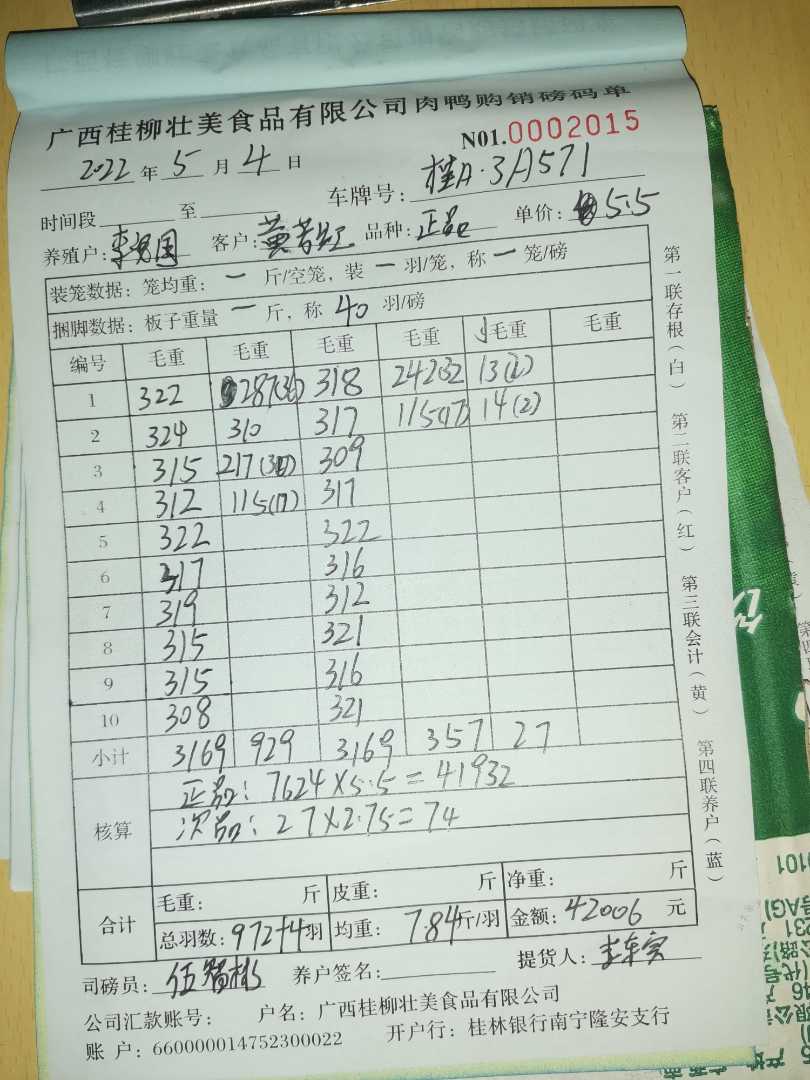 广西桂柳壮美食品有限公司肉鸭购销磅码单
N01.0002015
2022年5月4日
车牌号：桂A·3A571
时间段 至
养殖户： 客户：黄 品种：正品 单价：5.5
装笼数据：笼均重：一斤/空笼，装一羽/笼，称一笼/磅
捆脚数据：板子重量一斤，称40羽/磅
编号 毛重 毛重 毛重 毛重 毛重 毛重
1 322 287 318 242(32 13(2)
2 324 310 317 115(17) 14(2)
3 315 217 309
4 312 115(17) 317
5 322 322
6 317 316
7 319 312
8 315 321
9 315 316
10 308 321
小计 3169 929 3169 357 27
核算
正品：7624×5.5=41932
次品：27×2.75=74
合计
毛重： 斤 皮重： 斤 净重： 斤
总羽数：972+4羽 均重：7.84斤/羽 金额：42006元
司磅员：伍 养户签名： 提货人：李
公司汇款账号： 户名：广西桂柳壮美食品有限公司
账 户：660000014752300022 开户行：桂林银行南宁隆安支行
第一联存根（白） 第二联客户（红） 第三联会计（黄） 第四联养户（蓝）